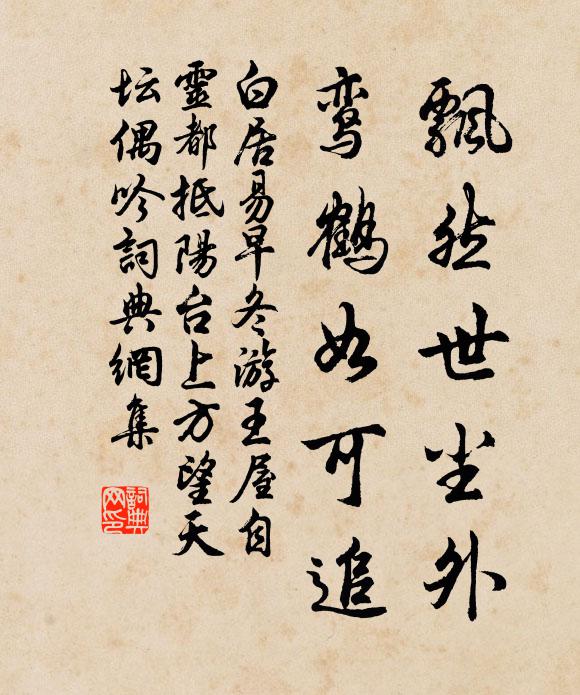 飄然世尘外
鸾鶴如可追
白居易早冬游王屋自
靈都抵陽台上方望天
坛偶吟詞典網集
詞典网印